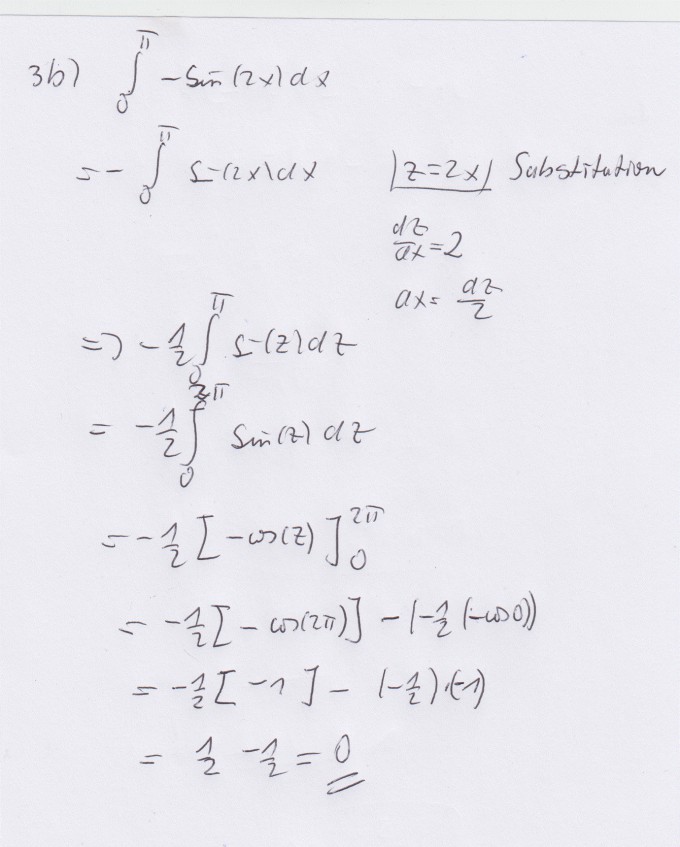 3b) ∫₀^π -sin(2x)dx
= - ∫₀^π sin(2x)dx |z=2x| Substitution
dz/dx = 2
dx = dz/2
=> -1/2 ∫₀^π sin(z)dz
= -1/2 ∫₀^2π sin(z) dz
= -1/2 [-cos(z)]₀^2π
= -1/2 [-cos(2π)] - (-1/2 (-cos0))
= -1/2 [-1] - (-1/2)·(-1)
= 1/2 - 1/2 = 0